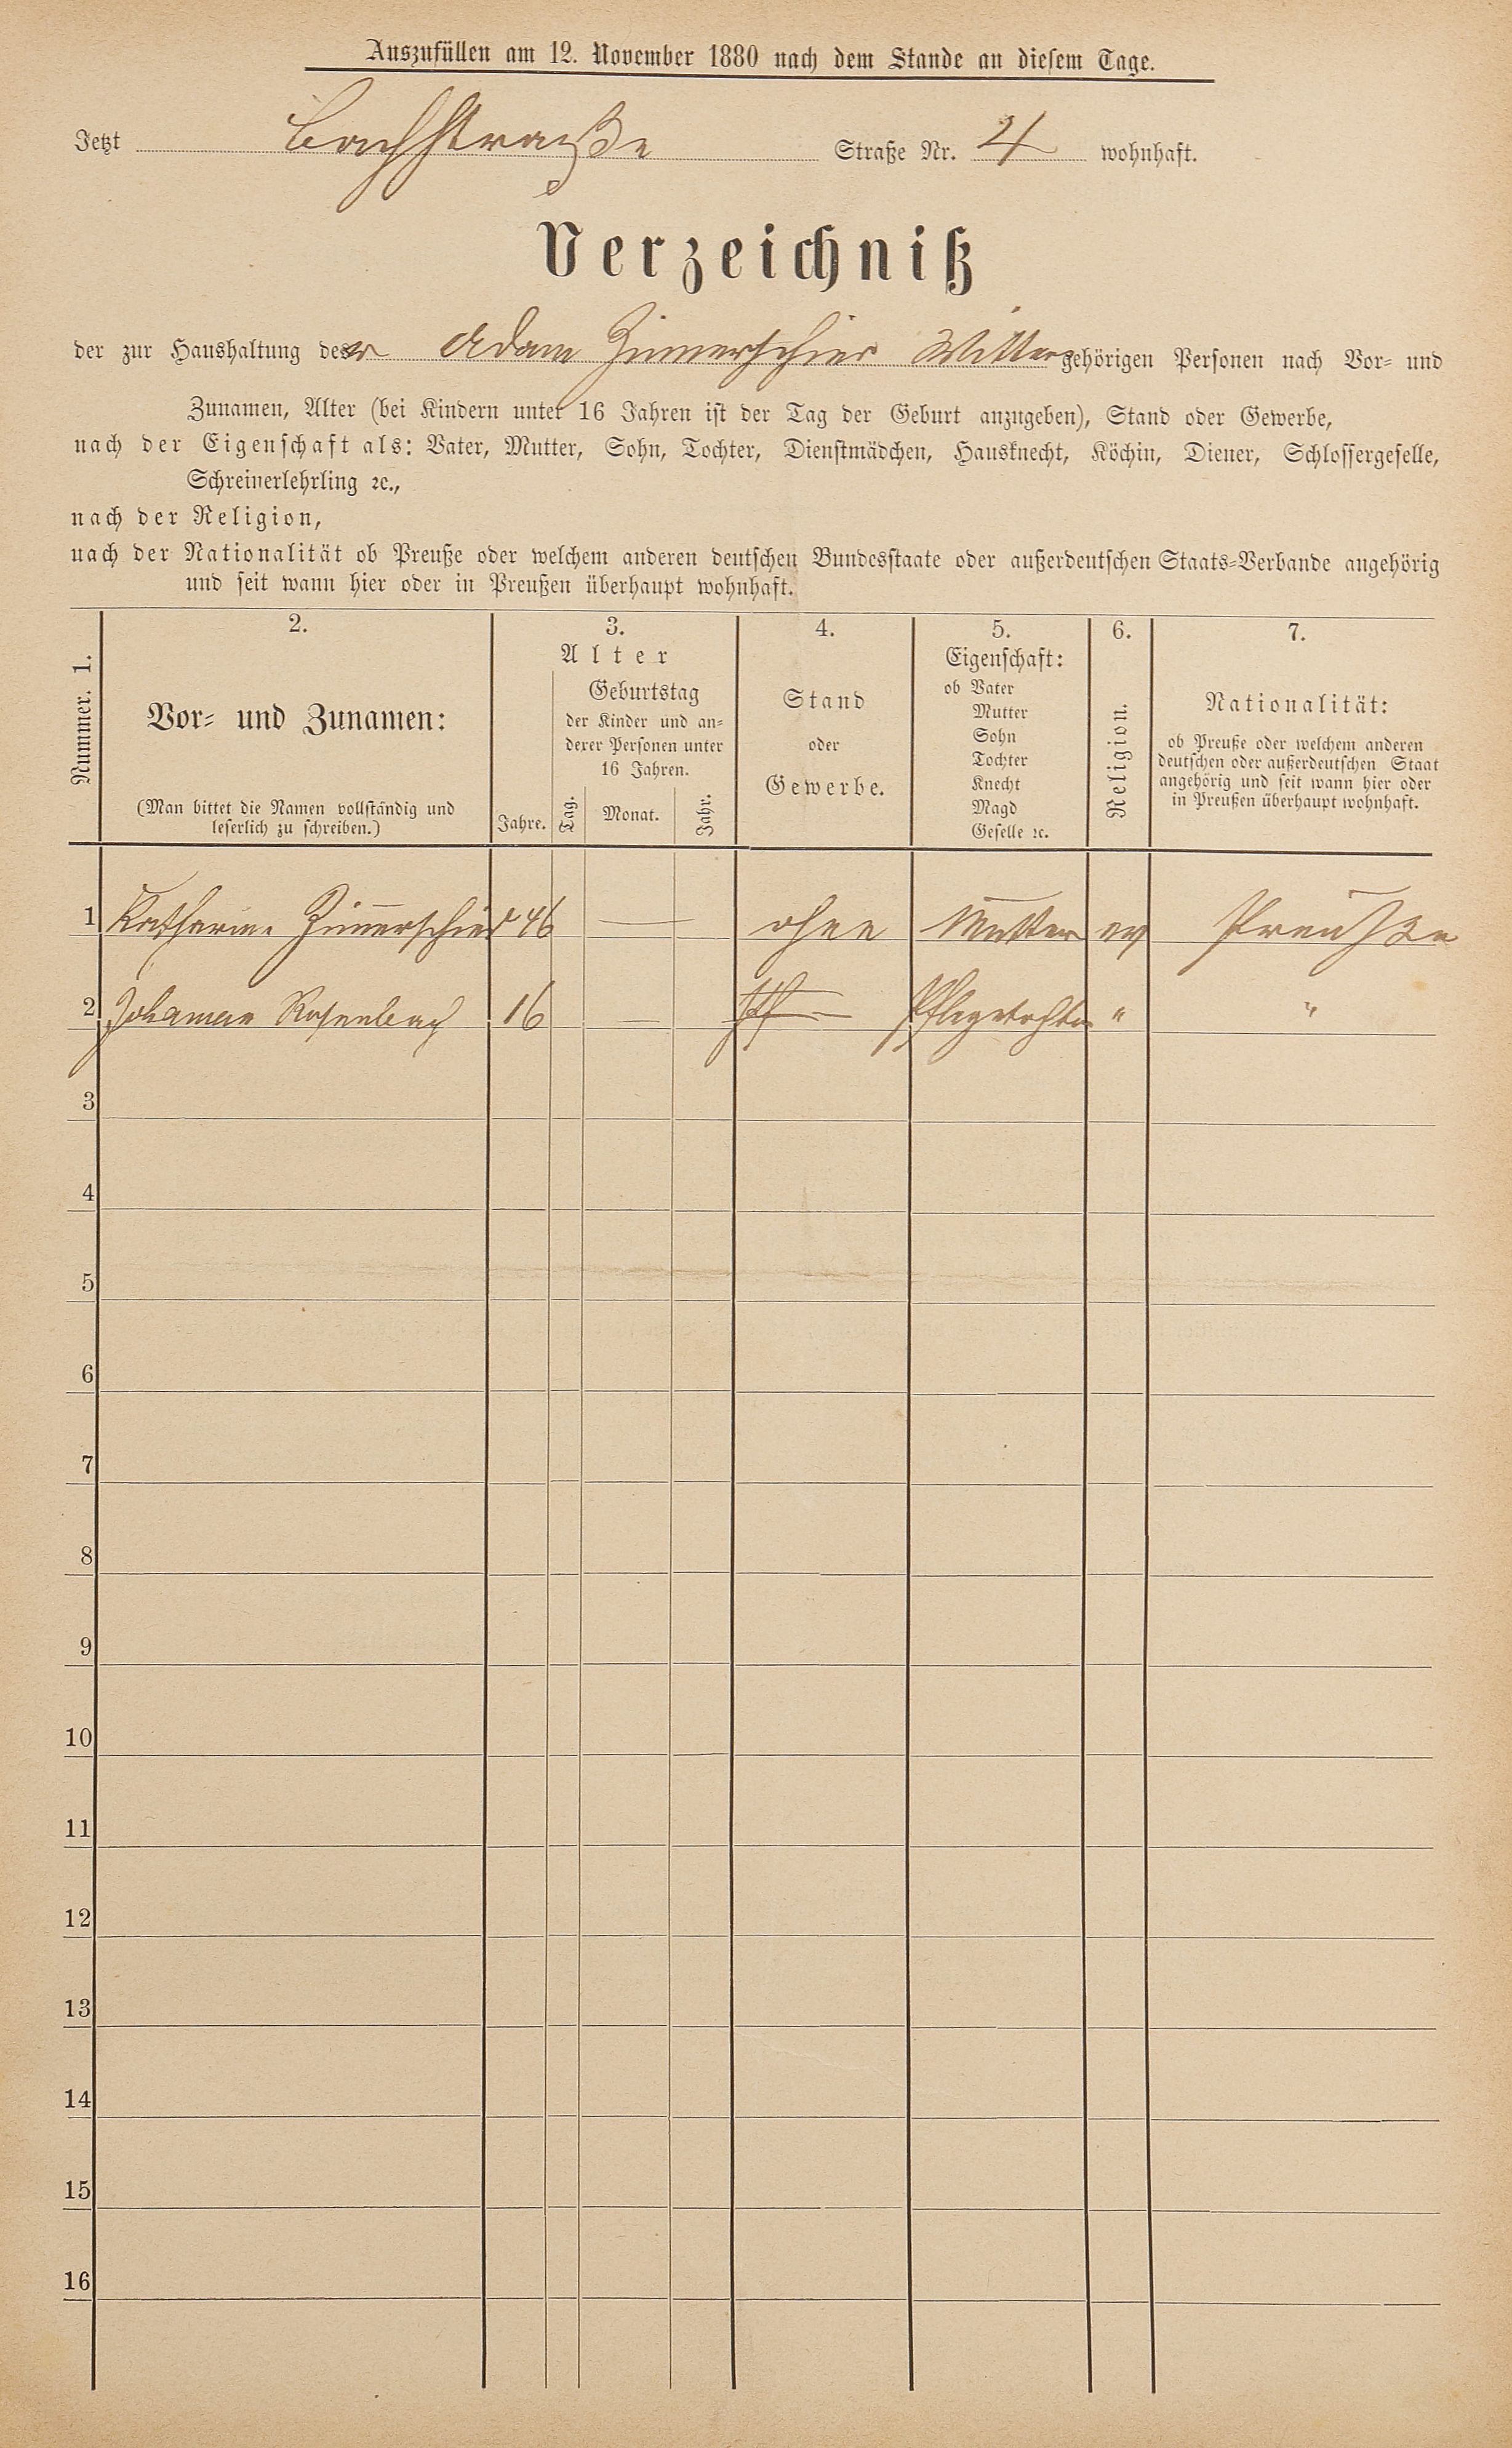 Auszufüllen am 12. November 1880 nach dem Stande an diesem Tage.
Jetzt Bachstraße Straße Nr. 4 wohnhaft.
Verzeichniß
der zur Haushaltung der Adam Zimerschied Wittwe gehörigen Personen nach Vor- und
Zunamen, Alter (bei Kindern unter 16 Jahren ist der Tag der Geburt anzugeben), Stand oder Gewerbe,
nach der Eigenschaft als: Vater, Mutter, Sohn, Tochter, Dienstmädchen, Hausknecht, Köchin, Diener, Schlossergeselle,
Schreinerlehrling ꝛc.,
nach der Religion,
nach der Nationalität ob Preuße oder welchem anderen deutschen Bundesstaate oder außerdeutschen Staats-Verbande angehörig
und seit wann hier oder in Preußen überhaupt wohnhaft.
Nummer. 1.
2.
Vor- und Zunamen:
(Man bittet die Namen vollständig und
leserlich zu schreiben.)
3.
Alter
Jahre.
Geburtstag
der Kinder und an-
derer Personen unter
16 Jahren.
Tag. Monat. Jahr.
4.
Stand
oder
Gewerbe.
5.
Eigenschaft:
ob Vater
Mutter
Sohn
Tochter
Knecht
Magd
Geselle ꝛc.
6.
Religion.
7.
Nationalität:
ob Preuße oder welchem anderen
deutschen oder außerdeutschen Staat
angehörig und seit wann hier oder
in Preußen überhaupt wohnhaft.
1 Katharina Zim̅erschied 46 — ohne Mutter ev Preußen
2 Johanna Rosenbach 16 — Pflegetochter " "
3
4
5
6
7
8
9
10
11
12
13
14
15
16